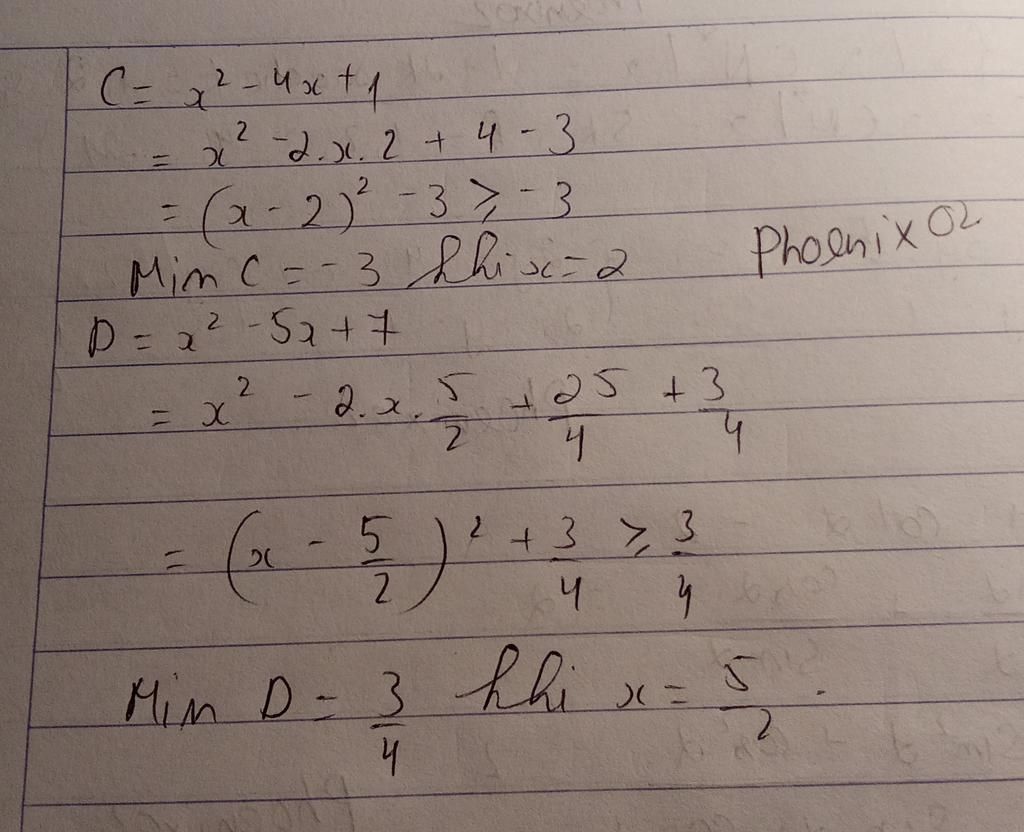 C = x² - 4x + 1
= x² - 2.x.2 + 4 - 3
= (x - 2)² - 3 ⩾ -3
Min C = -3 khi x = 2
Phoenix02
D = x² - 5x + 7
= x² - 2.x.5/2 + 25/4 + 3/4
= (x - 5/2)² + 3/4 ⩾ 3/4
Min D = 3/4 khi x = 5/2.